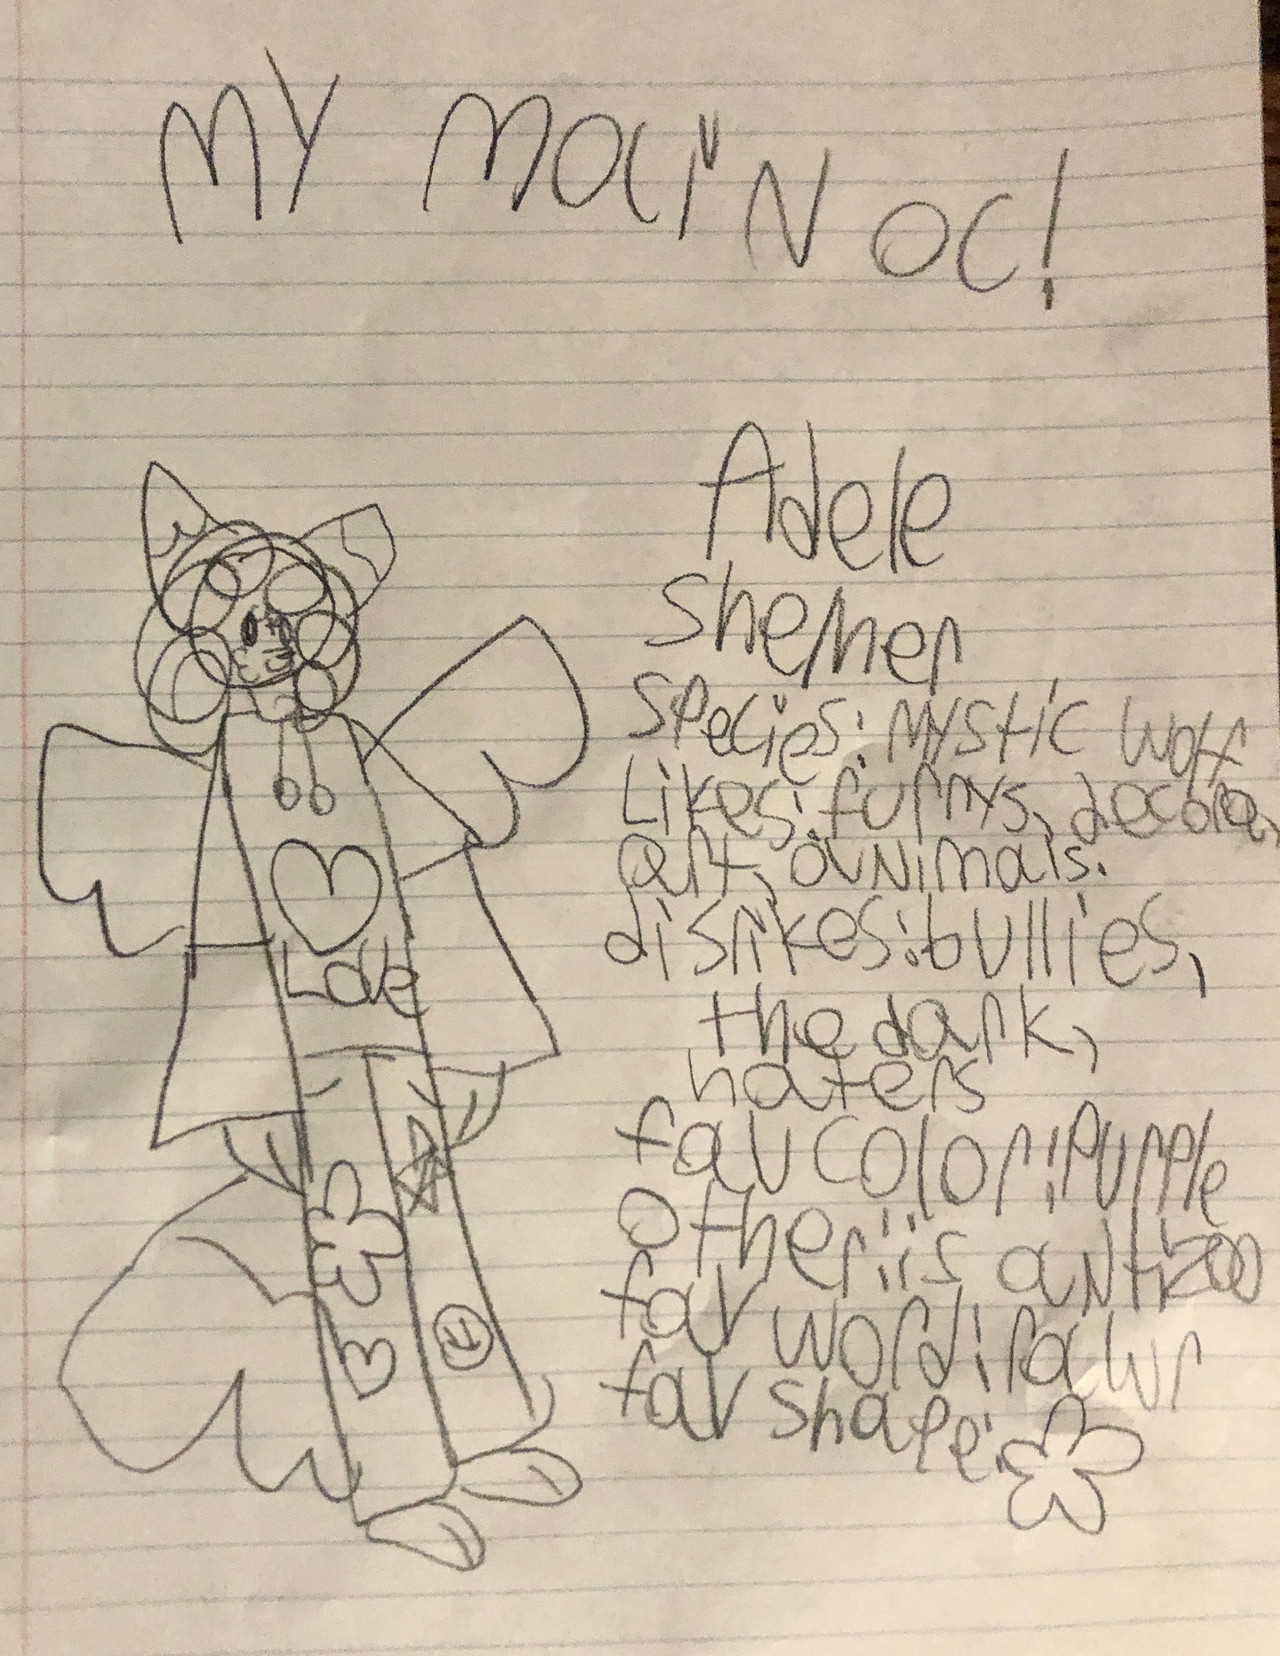 MY MaiN OC!
Adele
She/her
Species: Mystic Wolf
Likes: furrys, decora,
art, aNimals.
dislikes: bullies,
the dark,
haters
fav color: Purple
Other: is aNtizoo
fav word: rawr
fav shape:
Love